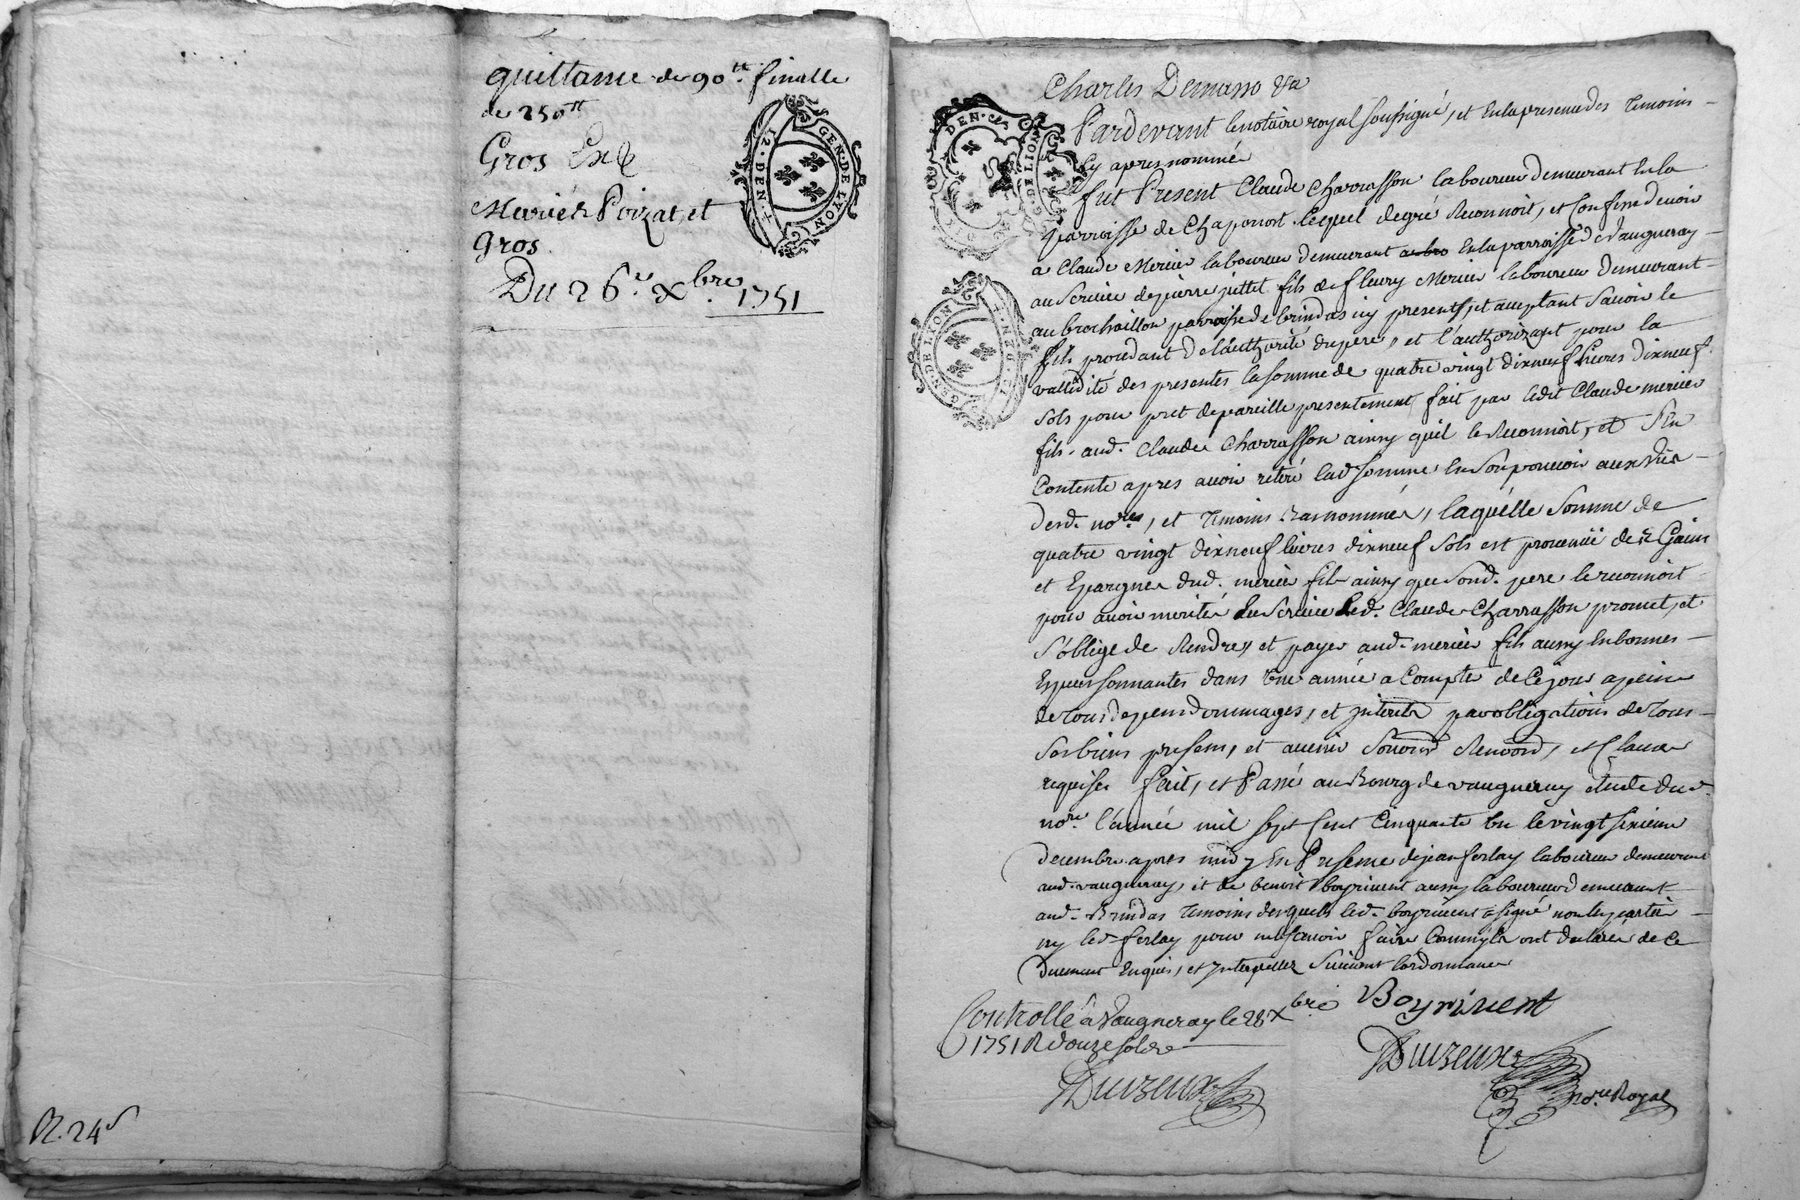 quittance de 90ᵗᵗ finalle
de 250ᵗᵗ
Gros
Marie Poizat, et
Gros.
Du 26ᵉ xbre 1751
GEN·DE LYON
12·DEN
R. 24ˢ
Charles
Pardevant le notaire royal soussigné, et en la presence des temoins
cy apres nommés
fut Present Claude Charrasson laboureur demeurant en la
parroisse de Chaponost lequel de gré reconnoit, et confesse devoir
a Claude Mercier laboureur demeurant en la parroisse de Vaugneray
au service de pierre juttet fils de fleury Mercier laboureur demeurant
au brochaillon parroisse de brindas icy presents, et acceptant savoir le
fils procedant de l'authorité du pere, et l'authorizant pour la
vallidité des presentes la somme de quatre vingt dixneuf livres dixneuf
sols pour pret de pareille presentement fait par ledit Claude mercier
fils aud. Claude Charrasson ainsy quil le reconnoit, et s'en
contente apres avoir retiré lad somme en son pouvoir aux vües
desd. noʳᵉˢ, et temoins, laquelle somme de
quatre vingt dixneuf livres dixneuf sols est provenüe des Gains
et Epargnes dud. mercier fils ainsy que sond. pere le reconnoit
pour avoir merités en service led. Claude Charrasson promet, et
s'oblige de rendre, et payer aud. mercier fils aussy en bonnes
especes sonnantes dans une année a compter de ce jour a peine
de tous depens dommages, et interets par obligations de tous
ses biens presens, et avenir et clauses
requises fait, et Passé au Bourg de vaugneray étude dud.
noʳᵉ l'année mil sept cent cinquante un le vingt sixieme
decembre apres midy en Presence de jean ferlay laboureur demeurant
aud. vaugneray, et de benoit boyrivent aussy laboureur demeurant
aud. Brindas temoins desquels led. boyrivent a signé non les parties
ny led. ferlay pour ne scavoir faire comm'ils ont declaré de ce
duement enquis, et interpellés suivant l'ordonnance
Controllé à Vaugneray le 28 xbre
1751 R douze sols
Boyrivent
Duvzeux
Duvzeux
noʳᵉ Royal
DEN
G·DE LION
GEN·DE LYON